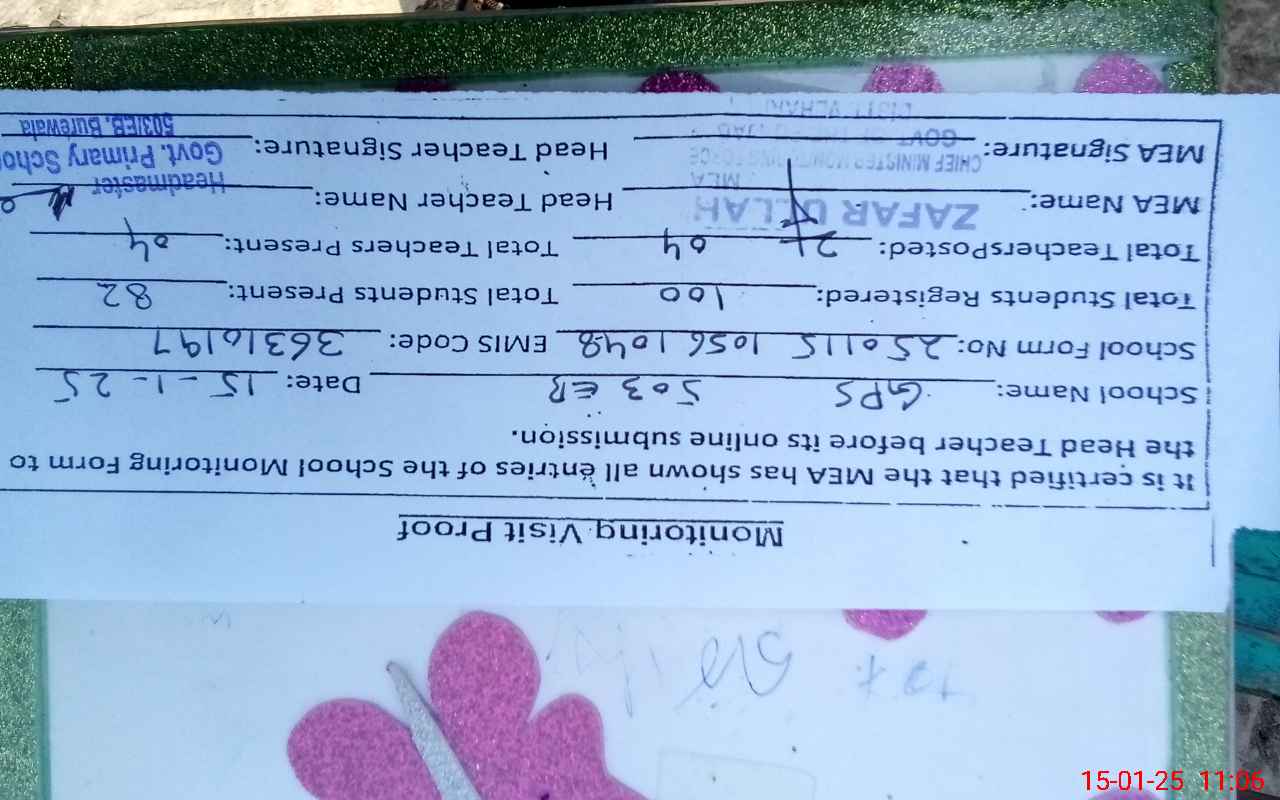 Monitoring Visit Proof
It is certified that the MEA has shown all entries of the School Monitoring Form to
the Head Teacher before its online submission.
School Name: GPS 503 EB Date: 15-1-25
School Form No: 250115 10561048 EMIS Code: 36310197
Total Students Registered: 100 Total Students Present: 82
Total TeachersPosted: 04 Total Teachers Present: 04
MEA Name: ZAFAR ULLAH Head Teacher Name:
MEA Headmaster
CHIEF MINISTER MONITORING FORCE Govt. Primary Schoo
MEA Signature: Head Teacher Signature:
GOVT 503/EB, Burewala
DISTT. VEHARI
15-01-25 11:06